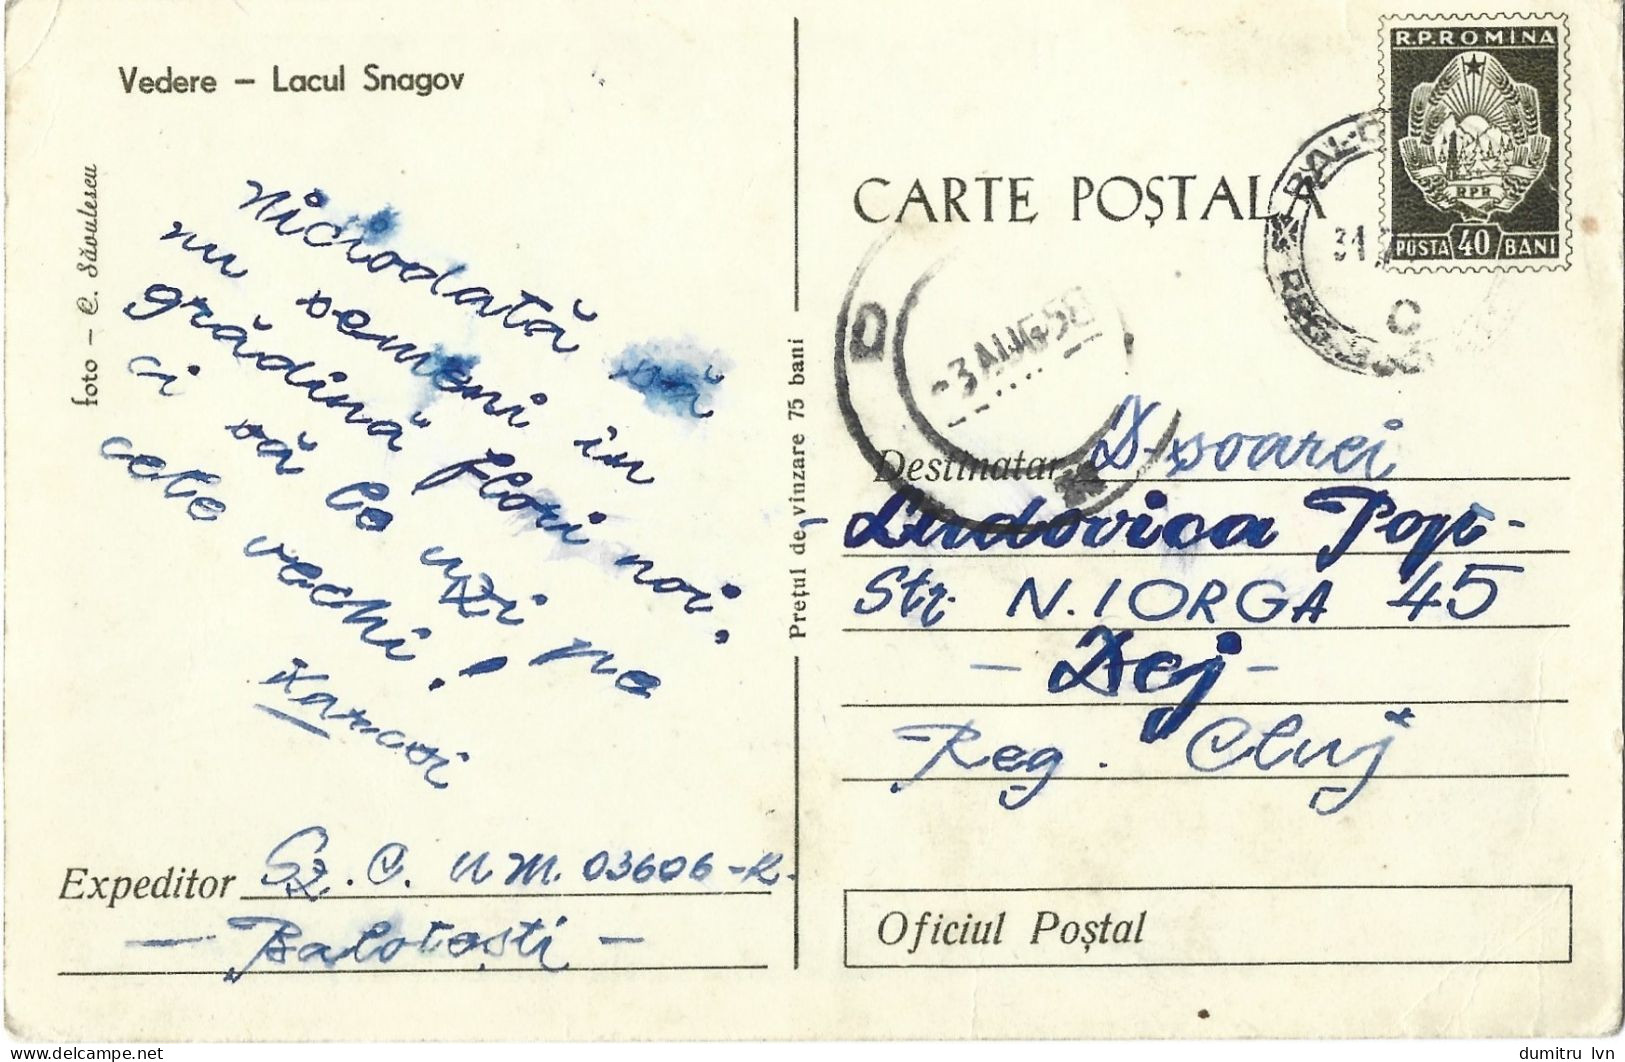 Vedere – Lacul Snagov
foto – C. Săvulescu
Niciodată să
nu semeni în
grădină flori noi.
ci să le uzi pe
cele vechi!
Expeditor Sz. C. U.M. 03606-K.
– Balotești –
Prețul de vînzare 75 bani
R.P.ROMINA
RPR
POSTA 40 BANI
CARTE POȘTALA
31
C
D
-3 AUG 58
Destinatar D-șoarei
Ludovica Pop -
Str. N. IORGA 45
– Dej –
Reg. Cluj
Oficiul Poștal
www.delcampe.net
dumitru_lvn